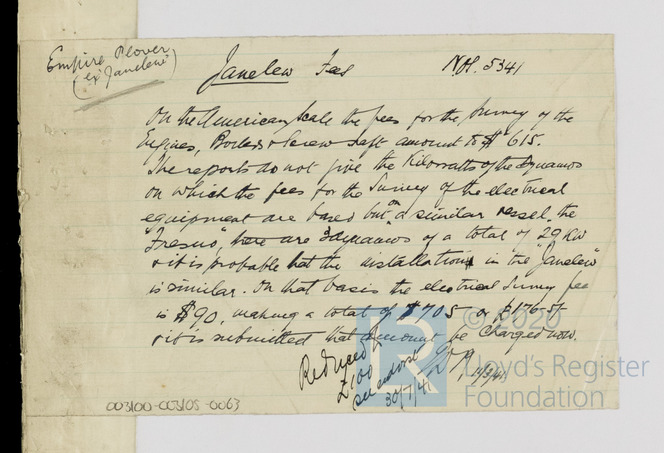 Empire Plover
(ex "Janelew")
Janelew Fees
On the American Scale the fees for the Survey of the
Engines, Boilers & Screw shaft amount to $615.
The reports do not give the Kilowatts of the dynamos
on which the fees for the Survey of the electrical
equipment are based but on a similar vessel, the
"Fresno", there are 3 dynamos of a total of 29 KW
& it is probable that the installation in the "Janelew"
is similar. On that basis the electrical Survey fee
is $90, making a total of $705 or £176.5/-
& it is submitted that amount be charged now.
Reduced
£100
30/7/41
© 2020
LR
Lloyd's Register
Foundation
003100-003105-0063